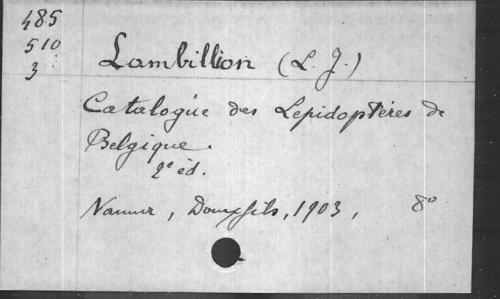 485
510
3
Lambillion (L. J.)
Catalogue des Lepidoptères de
Belgique.
2e éd.
Namur, Douxfils, 1903, 8°